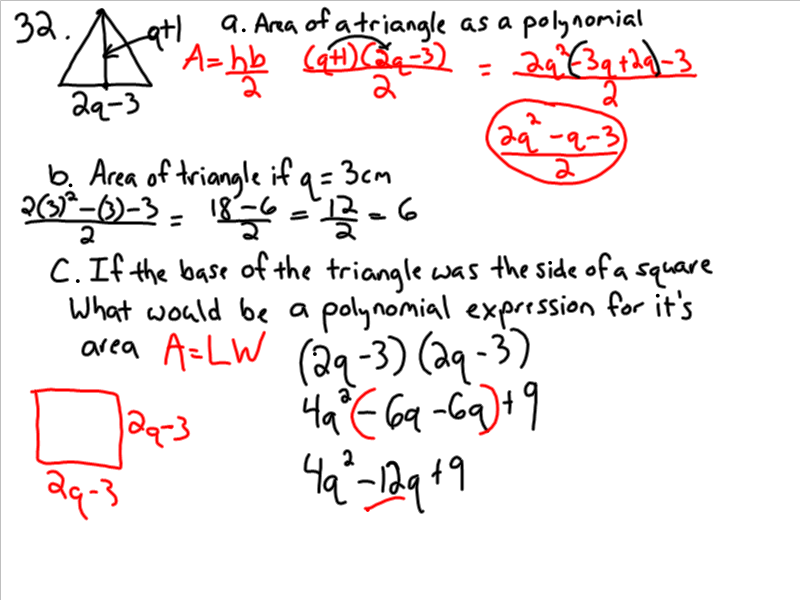 32. q+1 a. Area of a triangle as a polynomial
A = hb/2 (q+1)(2q-3)/2 = 2q²(-3q+2q)-3/2
2q-3
2q²-q-3/2
b. Area of triangle if q = 3cm
2(3)²-(3)-3/2 = 18-6/2 = 12/2 = 6
C. If the base of the triangle was the side of a square
What would be a polynomial expression for it's
area A=LW (2q-3)(2q-3)
4q²(-6q-6q)+9
2q-3
4q²-12q+9
2q-3